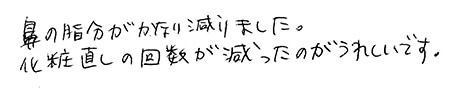 鼻の脂分がかなり減りました。
化粧直しの回数が減ったのがうれしいです。